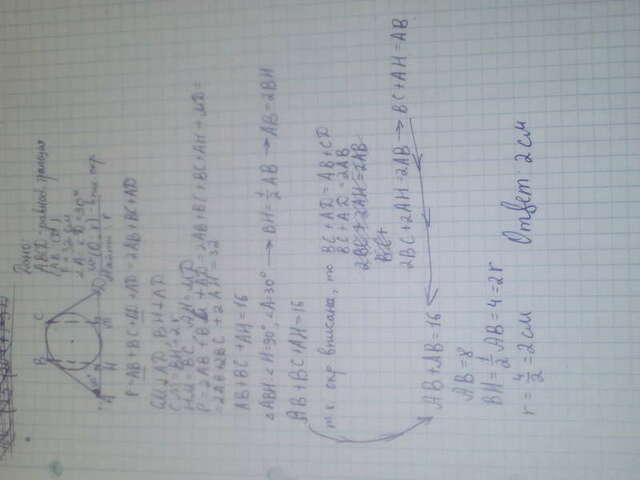 Дано:
ABCD - равноб. трапеция
(AB=CD)
P = 32 см
∠A = ∠D = 30°
w(O, r) - впис. окр.
Найти: r
B C
30°
A H M D
P = AB + BC + CD + AD = 2AB + BC + AD
CM ⊥ AD, BH ⊥ AD
CM = BH = 2r
HM = BC, AH = MD
P = 2AB + BC + AD = 2AB + BC + BC + AH + MD =
= 2AB + 2BC + 2AH = 32
AB + BC + AH = 16
△ABH: ∠H = 90°, ∠A = 30° → BH = 1/2 AB → AB = 2BH
AB + BC + AH = 16
т.к. окр. вписана, то BC + AD = AB + CD
BC + AD = 2AB
2BC + 2AH = 2AB
BC +
2BC + 2AH = 2AB → BC + AH = AB
AB + AB = 16
AB = 8
BH = 1/2 AB = 4 = 2r
r = 4/2 = 2 см
Ответ: 2 см